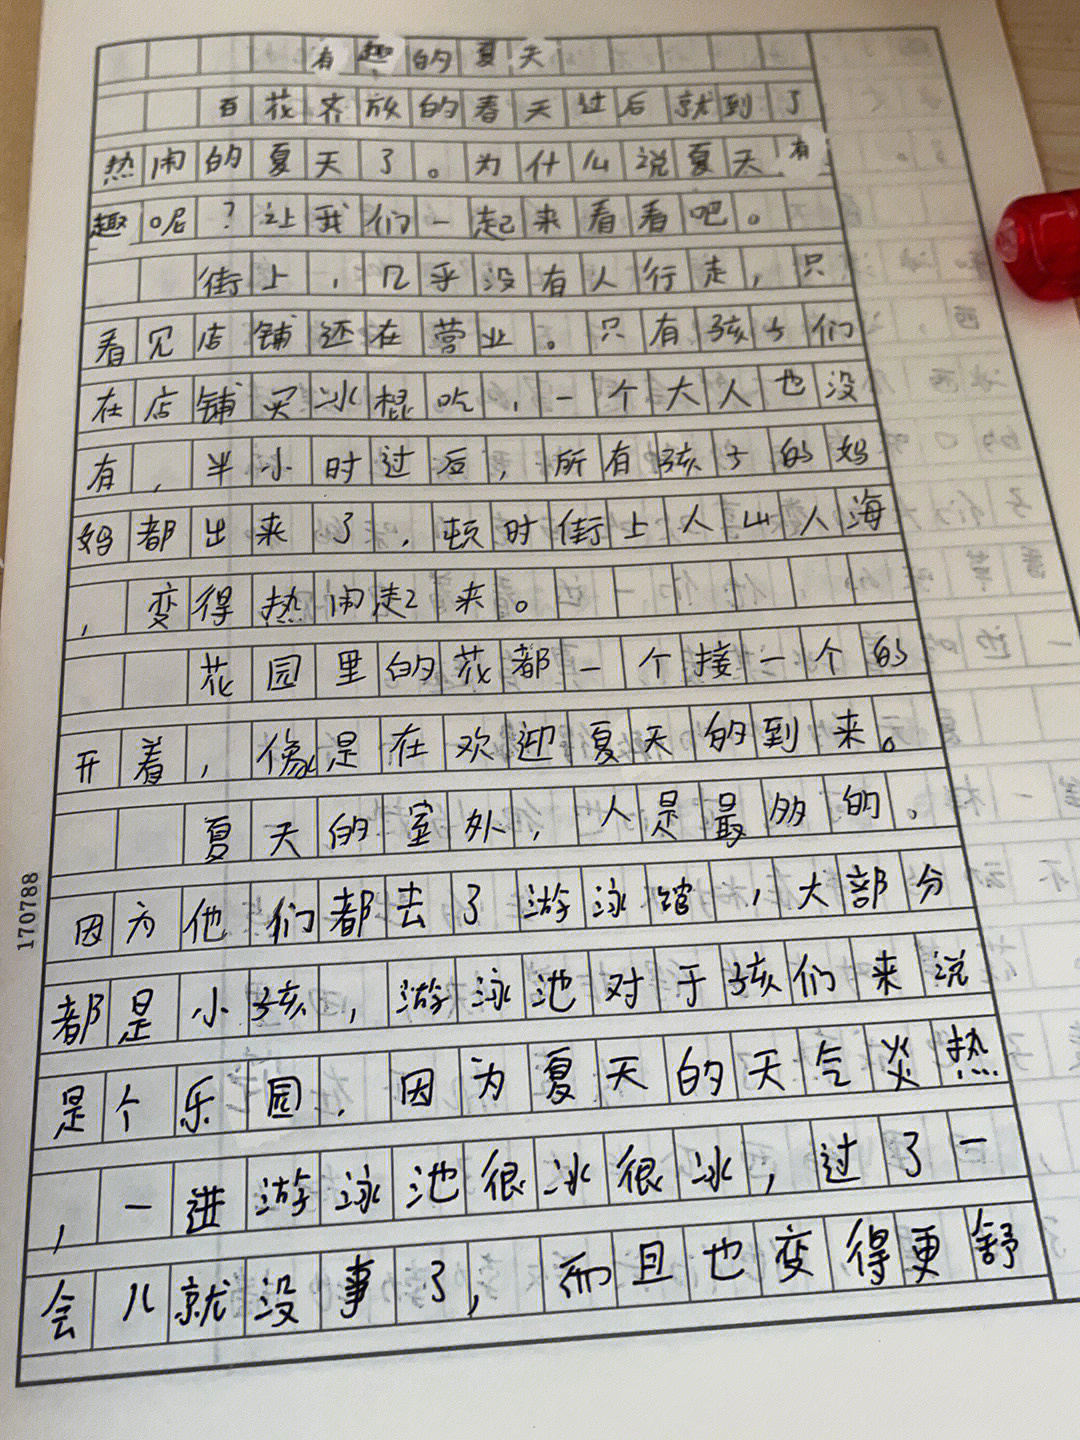 有趣的夏天
百花齐放的春天过后就到了
热闹的夏天了。为什么说夏天有
趣呢？让我们一起来看看吧。
街上，几乎没有人行走，只
看见店铺还在营业。只有孩子们
在店铺买冰棍吃，一个大人也没
有，半小时过后，所有孩子的妈
妈都出来了，顿时街上人山人海
，变得热闹起来。
花园里的花都一个接一个的
开着，像是在欢迎夏天的到来。
夏天的室外，人是最多的。
因为他们都去了游泳馆，大部分
都是小孩，游泳池对于孩们来说
是个乐园，因为夏天的天气炎热
，一进游泳池很冰很冰，过了一
会儿就没事了，而且也变得更舒
170788